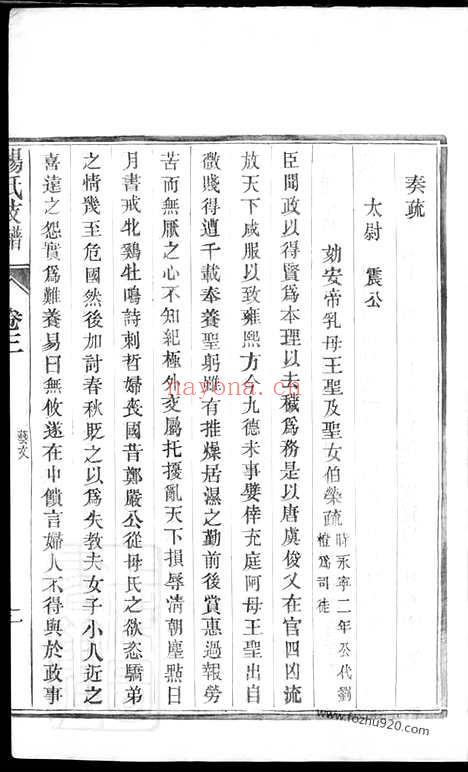 奏疏
太尉 震公
劾安帝乳母王聖及聖女伯榮疏 時永寧二年公代劉愷爲司徒
臣聞政以得賢爲本理以去穢爲務是以唐虞俊乂在官四凶流
放天下咸服以致雍熙方今九德未事嬖倖充庭阿母王聖出自
微賤得遭千載奉養聖躬雖有推燥居濕之勤前後賞惠過報勞
苦而無厭之心不知紀極外交屬托擾亂天下損辱清朝塵點日
月書戒牝鷄牡鳴詩刺哲婦喪國昔鄭嚴公從母氏之欲恣驕弟
之情幾至危國然後加討春秋貶之以爲失教夫女子小人近之
喜遠之怨實爲難養易曰無攸遂在中饋言婦人不得與於政事
楊氏支譜 卷三 藝文
nayona.cn
www.fozhu920.com